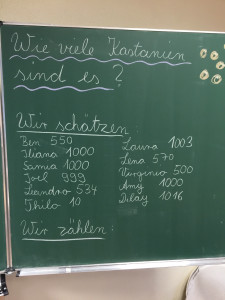 Wie viele Kastanien
sind es?
Wir schätzen
Ben 550
Iliana 1000
Samia 1000
Joel 999
Leandro 534
Thilo 10
Laura 1003
Lena 570
Virginio 500
Amy 1000
Dilay 1016
Wir zählen: